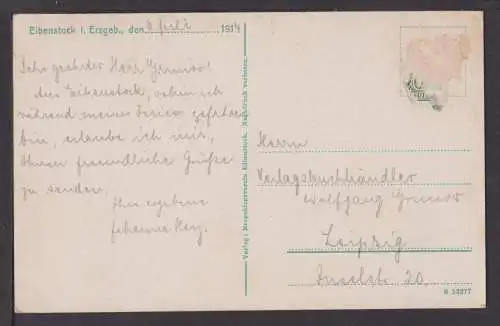 Eibenstock i. Erzgeb., den 9. Juli 1914
Sehr geehrter Herr
Aus Eibenstock, wohin ich
während meiner Ferien gefahren
bin, erlaube ich mir,
Ihnen freundliche Grüße
zu senden.
Ihre ergebene
Johanna
Verlag: Erzgebirgsverein Eibenstock. Nachdruck verboten.
Herrn
Verlagsbuchhändler
Wolfgang
Leipzig
Inselstr. 20.
R 53277